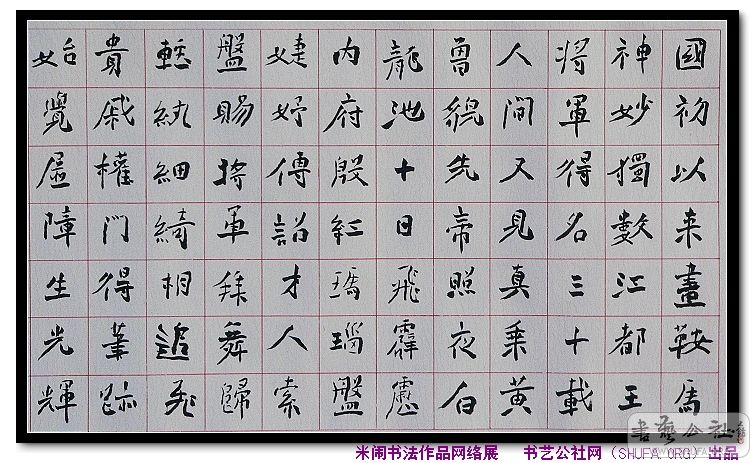 國初以来畫鞍馬
神妙獨數江都王
将軍得名三十載
人间又見真乗黄
曽貌先帝照夜白
龍池十日飛霹靂
内府殷紅瑪瑙盤
婕妤傳詔才人索
盤賜将軍拜舞歸
輕紈細綺相追飛
貴戚權門得筆跡
始覺屏障生光輝
米闹书法作品网络展 书艺公社网（SHUFA.ORG）出品